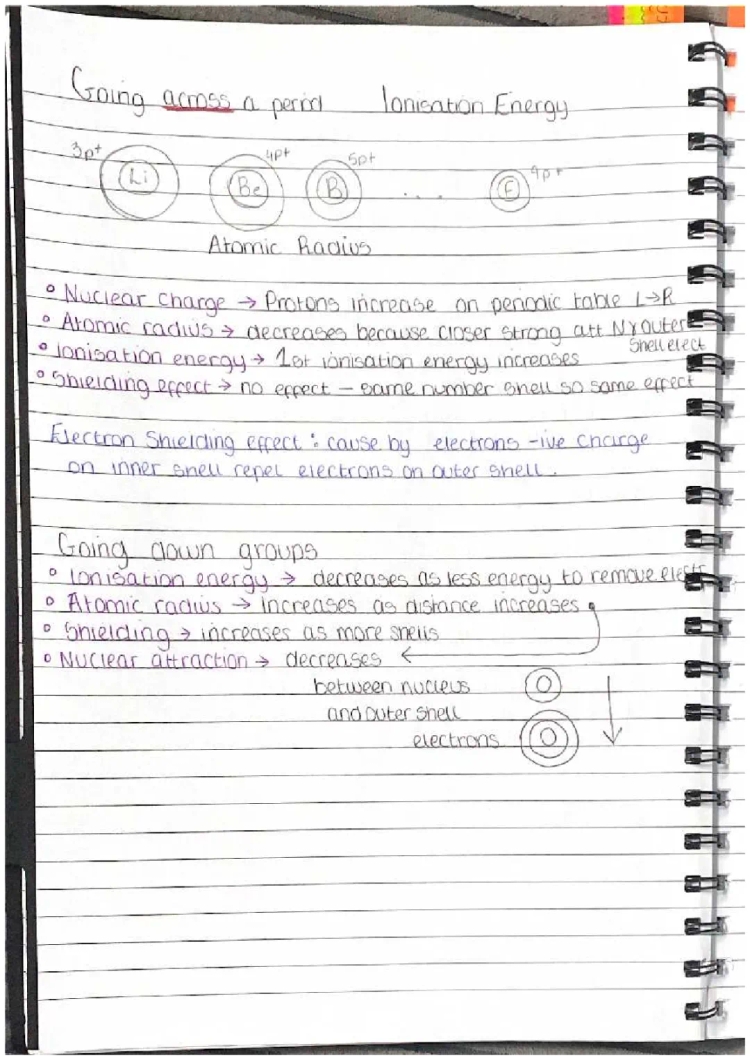 Going across a period Ionisation Energy
3p+ 4p+ 5p+ 9p+
Li Be B .... F
Atomic Radius
° Nuclear charge → Protons increase on periodic table L→R
° Atomic radius → decreases because closer strong att N outer
shell elect
° Ionisation energy → 1st ionisation energy increases
° Shielding effect → no effect – same number shell so same effect
Electron Shielding effect : cause by electrons -ive charge
on inner shell repel electrons on outer shell.
Going down groups
° Ionisation energy → decreases as less energy to remove elect
° Atomic radius → increases as distance increases
° Shielding → increases as more shells
° Nuclear attraction → decreases ←
between nucleus
and outer shell
electrons